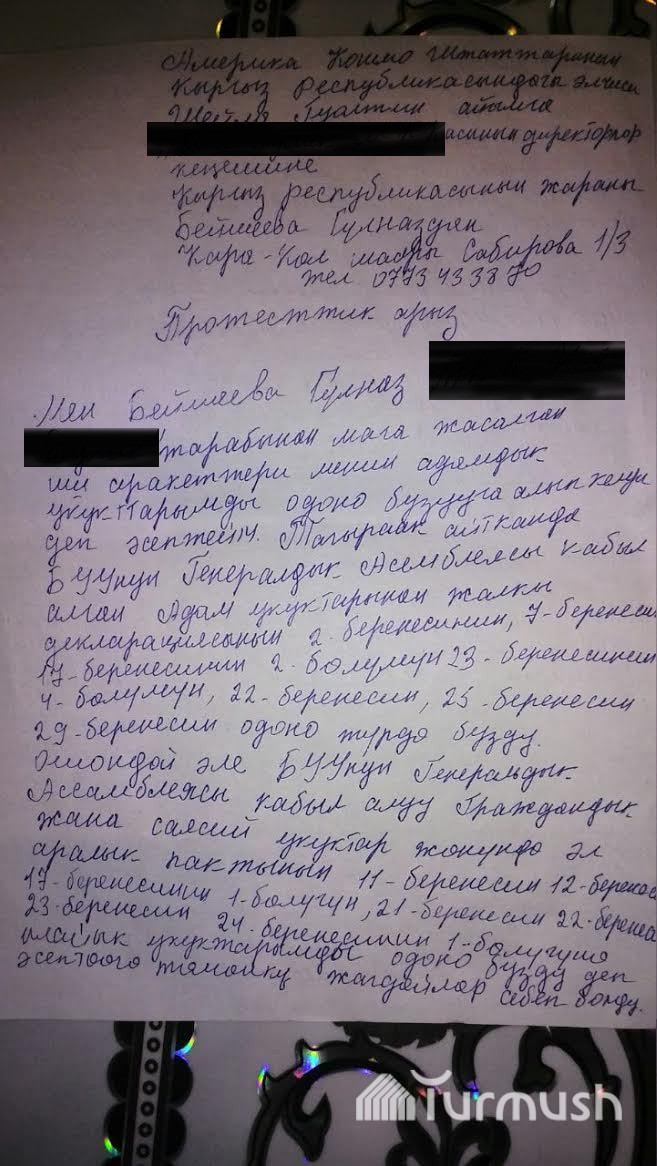 Америка Кошмо Штаттарынын
Кыргыз Республикасындагы элчиси
Шейла Гуалтни айымга
асынын директорлор
кеңешине
Кыргыз республикасынын жараны
Бейшеева Гүлназдан
Кара-Кол шаары Сабирова 1/3
тел 0773 433870
Протесттик арыз
Мен Бейшеева Гүлназ
тарабынан мага жасалган
иш аракеттери менин адамдык
укуктарымды одоно бузууга алып келди
деп эсептейм. Тагыраак айтканда
БУУнун Генералдык Ассемблеясы кабыл
алган Адам укуктарынын жалпы
декларациясынын 2-беренесинин, 7-беренесин
17-беренесинин 2-бөлүмүн 23-беренесинин
4-бөлүмүн, 22-беренесин, 25-беренесин
29-беренесин одоно түрдө бузду.
Ошондой эле БУУнун Генеральдык
Ассамблеясы кабыл алуу Граждандык
жана саясий укуктар жөнүндө эл
аралык пактынын 11-беренесин 12-беренеси
17-беренесинин 1-бөлүгүн, 21-беренесин 22-беренес
23-беренесин 24-беренесинин 1-бөлүгүнө
ылайык укуктарымды одоно бузду деп
эсептөөгө төмөнкү жагдайлар себеп болду.
Turmush